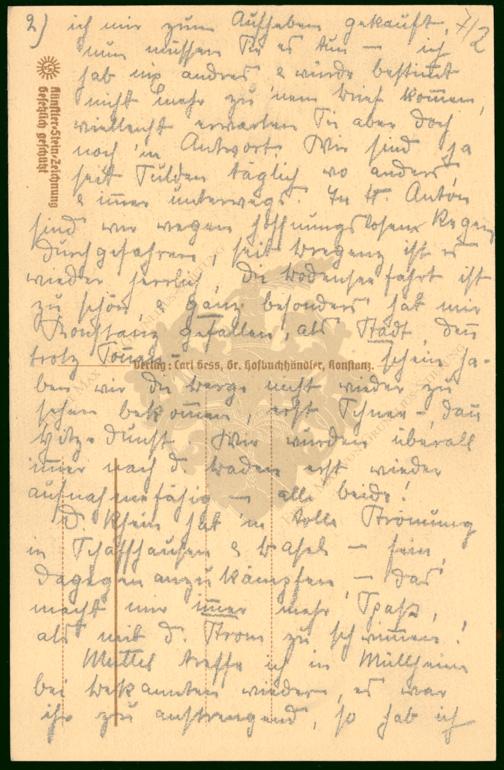 2) ich mir zum Aufheben gekauft, 7/2
nun müssen Sie es tun – ich
hab nix andres & würde bestimmt
nicht mehr zu 'nem Brief kommen,
vielleicht erwarten Sie aber doch
noch 'n Antwort. Wir sind ja
seit Fulden täglich wo anders
& immer unterwegs. In St. Anton
sind wir wegen hoffnungslosem Regen
durchgefahren, seit Bregenz ist es
wieder herrlich, die Bodenseefahrt ist
zu schön & ganz besonders hat mir
Konstanz gefallen, als Stadt, denn
trotz schein ha-
ben wir die Berge nicht wieder zu
sehen bekommen, erst Schnee-, dann
Hitze-Dunst. Wir wurden überall
immer nach d. Baden erst wieder
aufnahmefähig – alle beide!
D. Rhein hat 'ne tolle Strömung
in Schaffhausen & Basel – fein,
dagegen anzukämpfen, – das
macht mir immer mehr Spaß,
als mit d. Strom zu schwimmen!
Muttel treffe ich in Müllheim
bei Bekannten wieder, es war
ihr zu anstrengend, so hab ich
Künstler-Stein-Zeichnung
Gesetzlich geschützt
Verlag: Carl Gess, Gr. Hofbuchhändler, Konstanz.